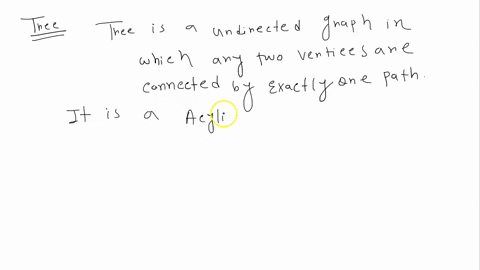 Tree Tree is a undirected graph in
which any two verticesare
connected by exactly one path.
It is a Acyli